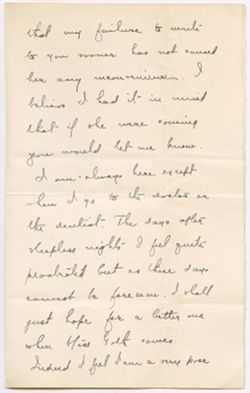 that my failure to write
to you sooner has not caused
her any inconvenience. I
believe I had it in mind
that if she were coming
you would let me know.
I am always here except
when I go to the doctor or
the dentist. The days after
sleepless nights I feel quite
prostrated but as these days
cannot be foreseen I shall
just hope for a better one
when Miss comes.
Indeed I feel I am a very poor